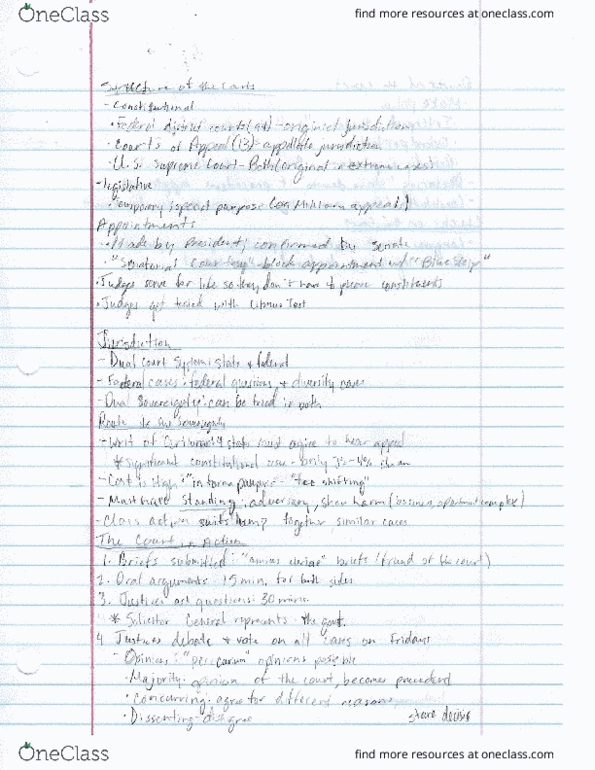 OneClass
find more resources at oneclass.com
Structure of the Courts
- Constitutional
• Federal district courts (94) - original jurisdiction
• Courts of Appeal (13) - appellate jurisdiction
• U.S. Supreme Court - Both (original extreme cases)
- legislative
• Temporary special purpose (ex Military appeal)
Appointments
• Made by President; confirmed by senate
• "Senatorial Courtesy" - block appointment w/ "Blue Slip"
• Judges serve for life so they don't have to please constituents
• Judges get tested with Litmus Test
Jurisdiction
- Dual court system: state & federal
- Federal cases: federal questions & diversity cases
- Dual Sovereignty: can be tried in both
Route
- Writ of Certiorari: 4 must agree to hear appeal
* significant constitutional issue - only 3%-4%
- Cost is High: "in forma pauperis" - "fee shifting"
- Must have standing: adversary, show harm (business, apartment complex)
- Class action suits lump together similar cases
The Court in Action
1. Briefs submitted: "amicus curiae" briefs (friend of the court)
2. Oral arguments: 15 min. for both sides
3. Justices ask questions: 30 mins.
* Solicitor General represents the govt.
4. Justices debate & vote on all cases on Fridays
- Opinions: "per curiam" opinions possible
• Majority: opinion of the court, becomes precedent
• Concurring: agree for different reasons
• Dissenting: disagree
stare decisis
OneClass
find more resources at oneclass.com